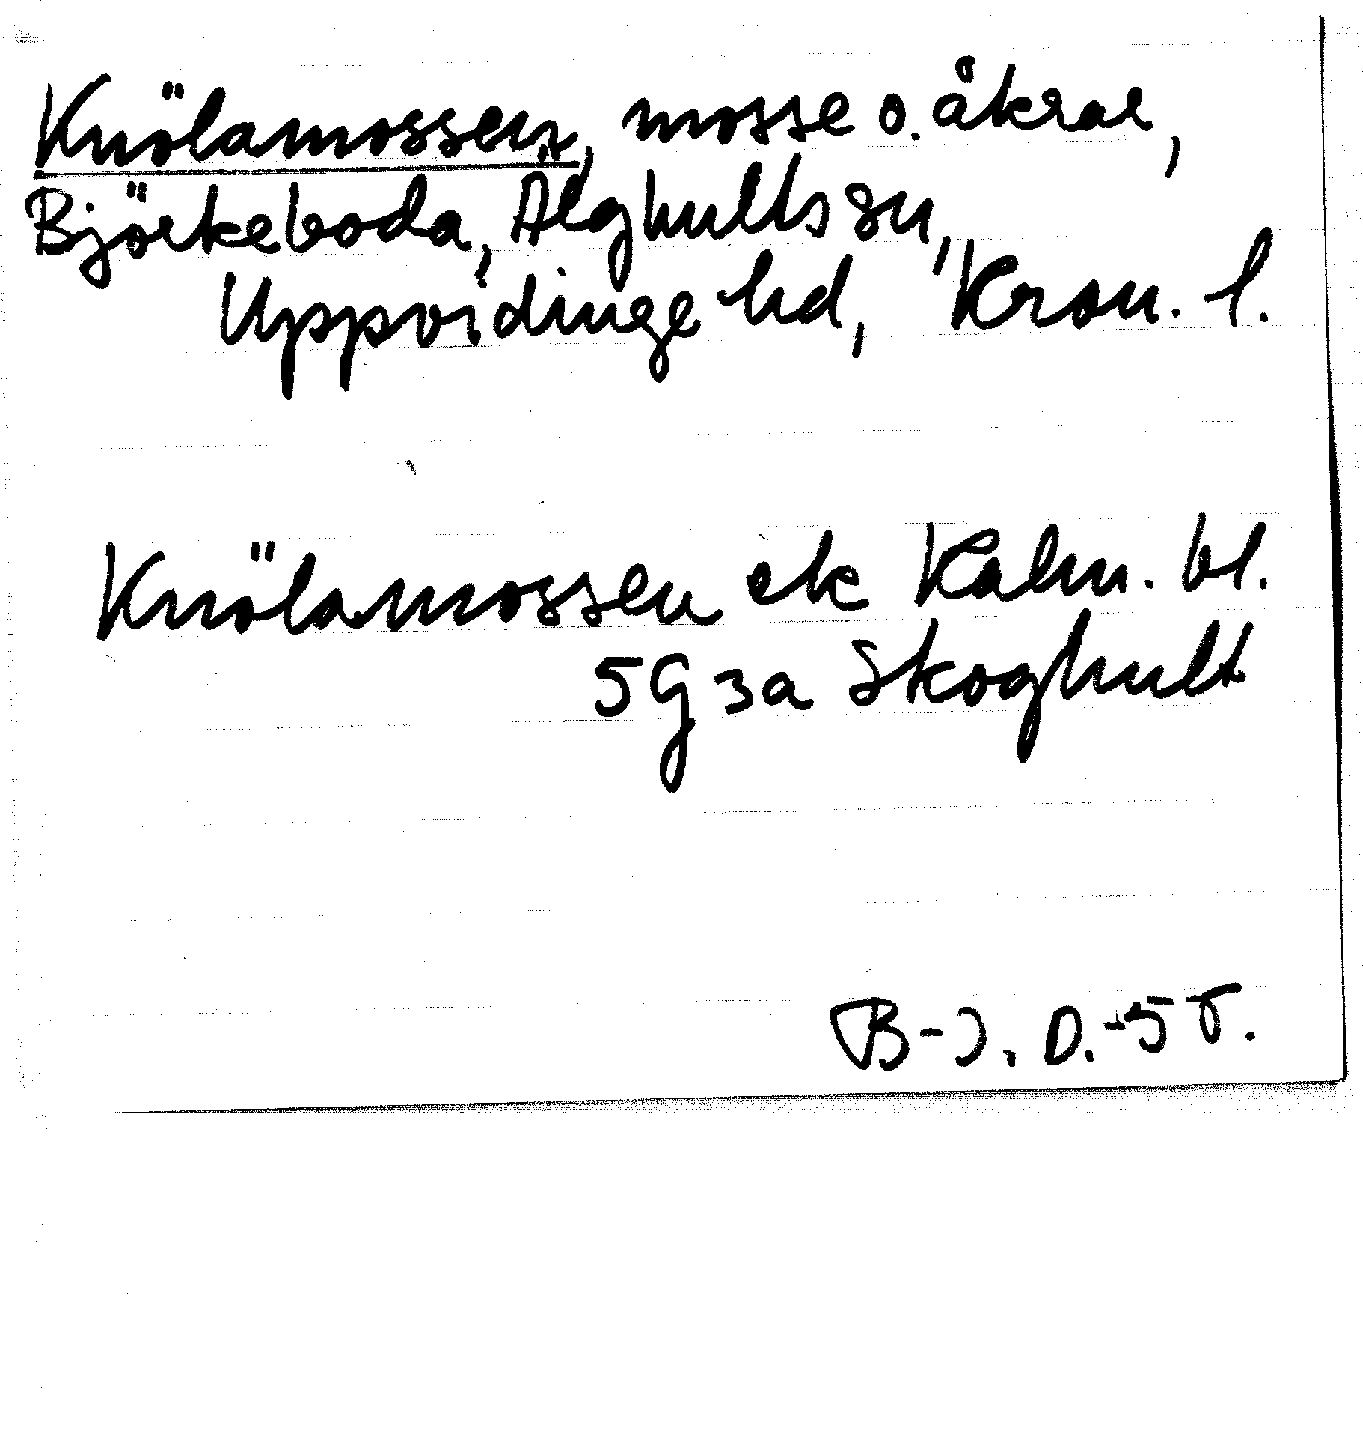 Knölamossen, mosse o. åkrar,
Björkeboda, Älghults sn,
Uppvidinge hd, Kron. l.
Knölamossen ek Kalm. bl.
5G 3a Skoghult
B-J. D.-5T.